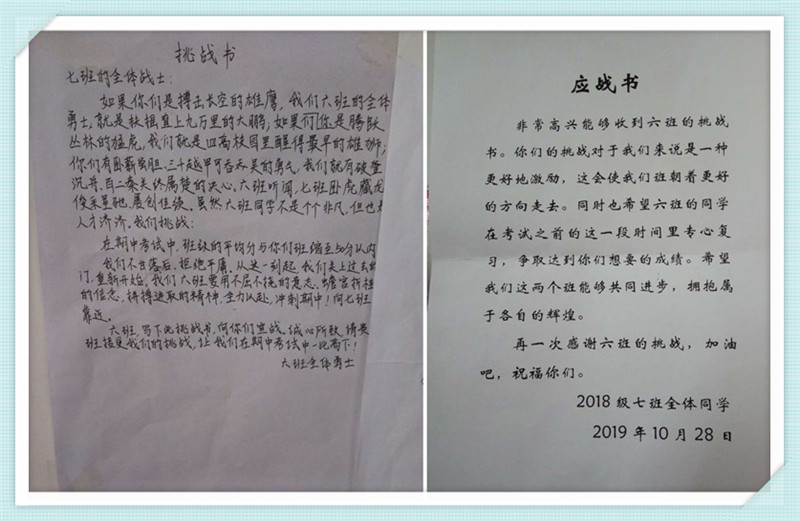 挑战书
七班的全体战士：
如果你们是搏击长空的雄鹰，我们六班的全体
勇士，就是扶摇直上九万里的大鹏；如果你们是腾跃
丛林的猛虎，我们就是四高校园里醒得最早的雄狮；
你们有卧薪尝胆，三千越甲可吞吴的勇气，我们就有破釜
沉舟，百二秦关终属楚的决心。六班听闻，七班卧虎藏龙
俊采星驰，屡创佳绩。虽然六班同学不是个个非凡，但也
人才济济。我们挑战：
在期中考试中，班级的平均分与你们班缩至50分以内
我们不甘落后，拒绝平庸。从这一刻起，我们关上过去的
门，重新开始。我们六班要用不屈不挠的意志，蟾宫折桂
的信念，拼搏进取的精神，全力以赴，冲刺期中！向七班
靠近。
六班，写下此挑战书，向你们宣战。诚心所致，请贵
班接受我们的挑战，让我们在期中考试中一比高下！
六班全体勇士
应战书
非常高兴能够收到六班的挑战
书。你们的挑战对于我们来说是一种
更好地激励，这会使我们班朝着更好
的方向走去。同时也希望六班的同学
在考试之前的这一段时间里专心复
习，争取达到你们想要的成绩。希望
我们这两个班能够共同进步，拥抱属
于各自的辉煌。
再一次感谢六班的挑战，加油
吧，祝福你们。
2018级七班全体同学
2019年10月28日